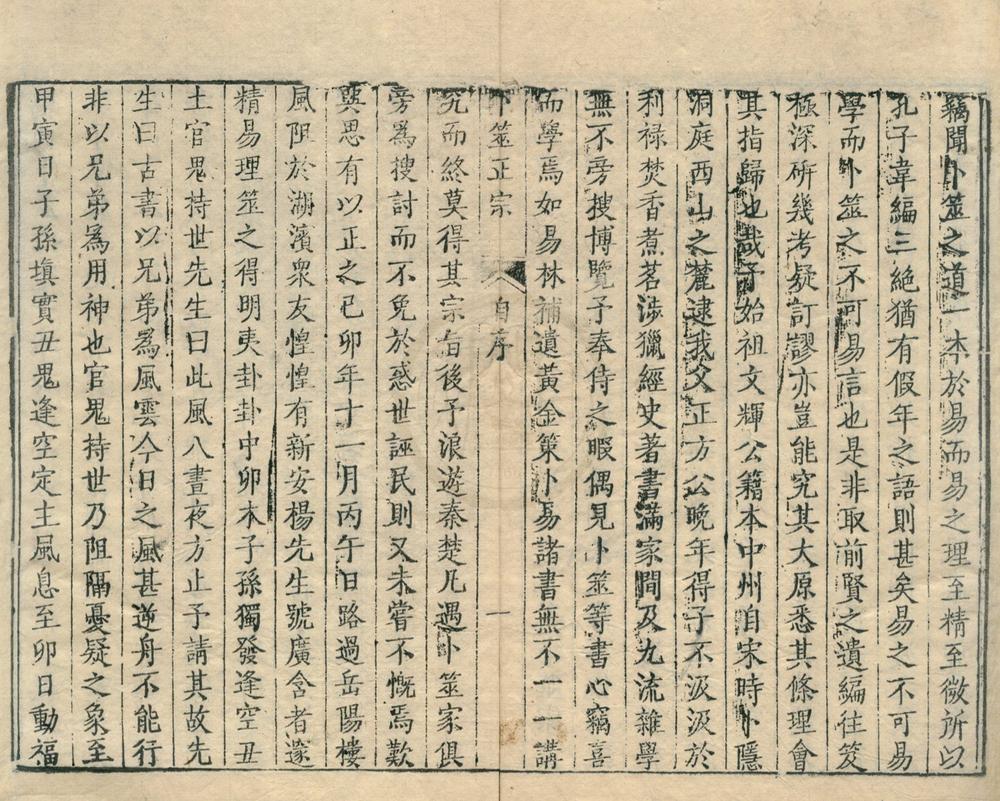 竊聞卜筮之道一本於易而易之理至精至微所以
孔子韋編三絶猶有假年之語則甚矣易之不可易
學而卜筮之不可易言也是非取前賢之遺編往笈
極深硏幾考疑訂謬亦豈能究其大原悉其條理會
其指歸也哉予始祖文輝公籍本中州自宋時卜隱
洞庭西山之麓逮我父正方公晩年得子不汲汲於
利祿焚香煮茗涉獵經史著書滿家間及九流雜學
無不旁搜博覽予奉侍之暇偶見卜筮等書心竊喜
而學焉如易林補遺黃金策卜易諸書無不一一講
卜筮正宗 自序 一
究而終莫得其宗旨後予浪遊秦楚凡遇卜筮家俱
旁爲搜討而不免於惑世誣民則又未嘗不慨焉歎
興思有以正之己卯年十一月丙午日路過岳陽樓
風阻於湖濱衆友惶惶有新安楊先生號廣含者邃
精易理筮之得明夷卦卦中卯木子孫獨發逢空丑
土官鬼持世先生曰此風八晝夜方止予請其故先
生曰古書以兄弟爲風雲今日之風甚逆舟不能行
非以兄弟爲用神也官鬼持世乃阻隔憂疑之象至
甲寅日子孫塡實丑鬼逢空定主風息至卯日動福